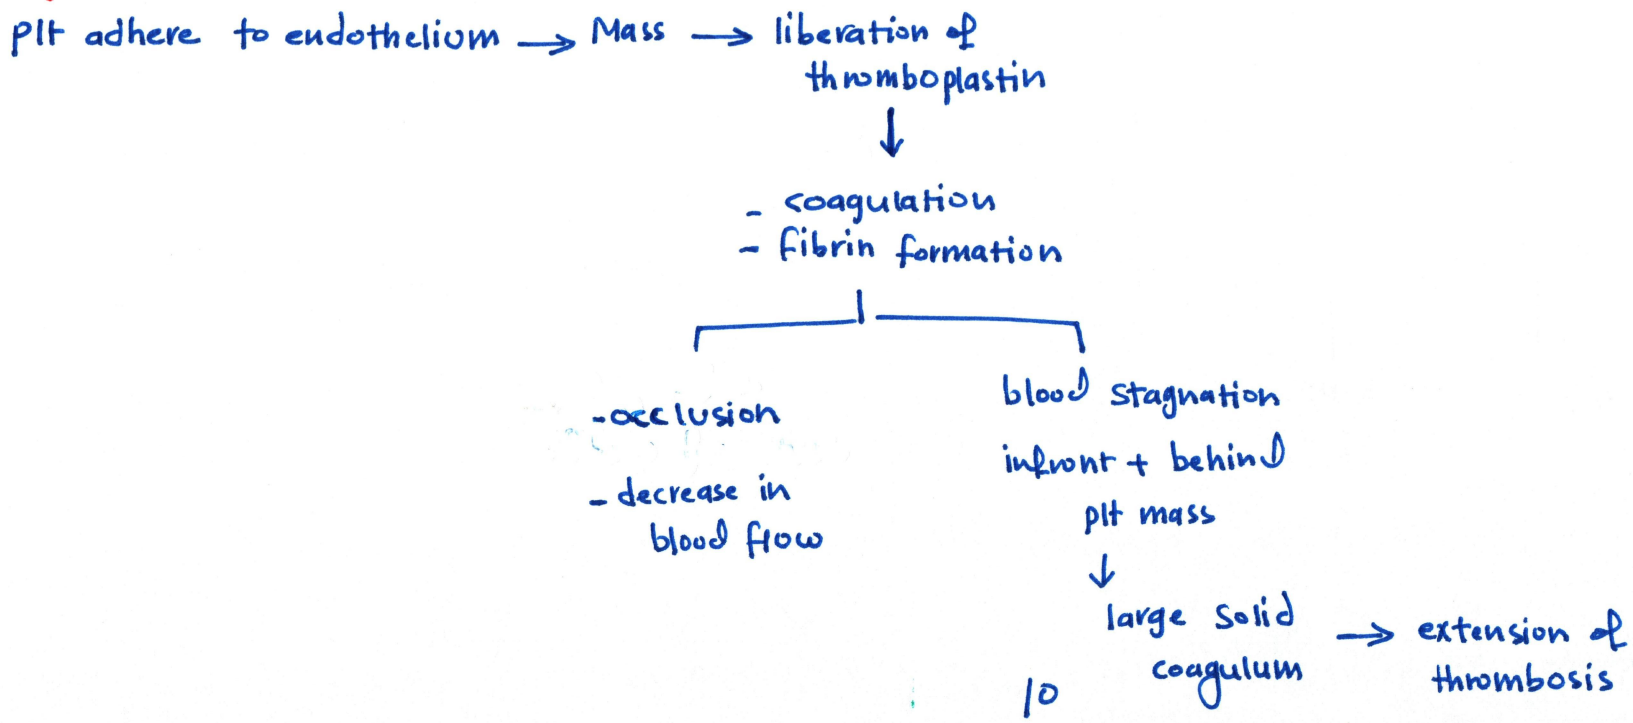 Plt adhere to endothelium → Mass → liberation of
thromboplastin
↓
- coagulation
- fibrin formation
- occlusion
- decrease in
blood flow
blood stagnation
infront + behind
plt mass
↓
large solid
coagulum
→ extension of
thrombosis
10